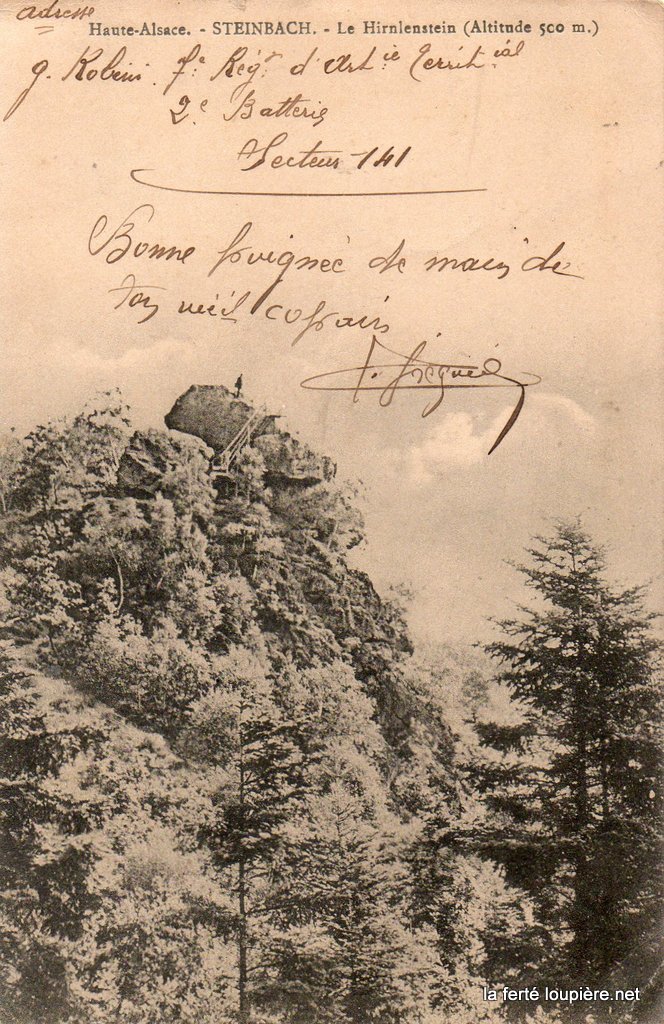 adresse
Haute-Alsace. - STEINBACH. - Le Hirnlenstein (Altitude 500 m.)
g. Robini. 7e Régt d'Artie Territial
2e Batterie
Secteur 141
Bonne poignée de main de
ton vieil copain
la ferté loupière.net